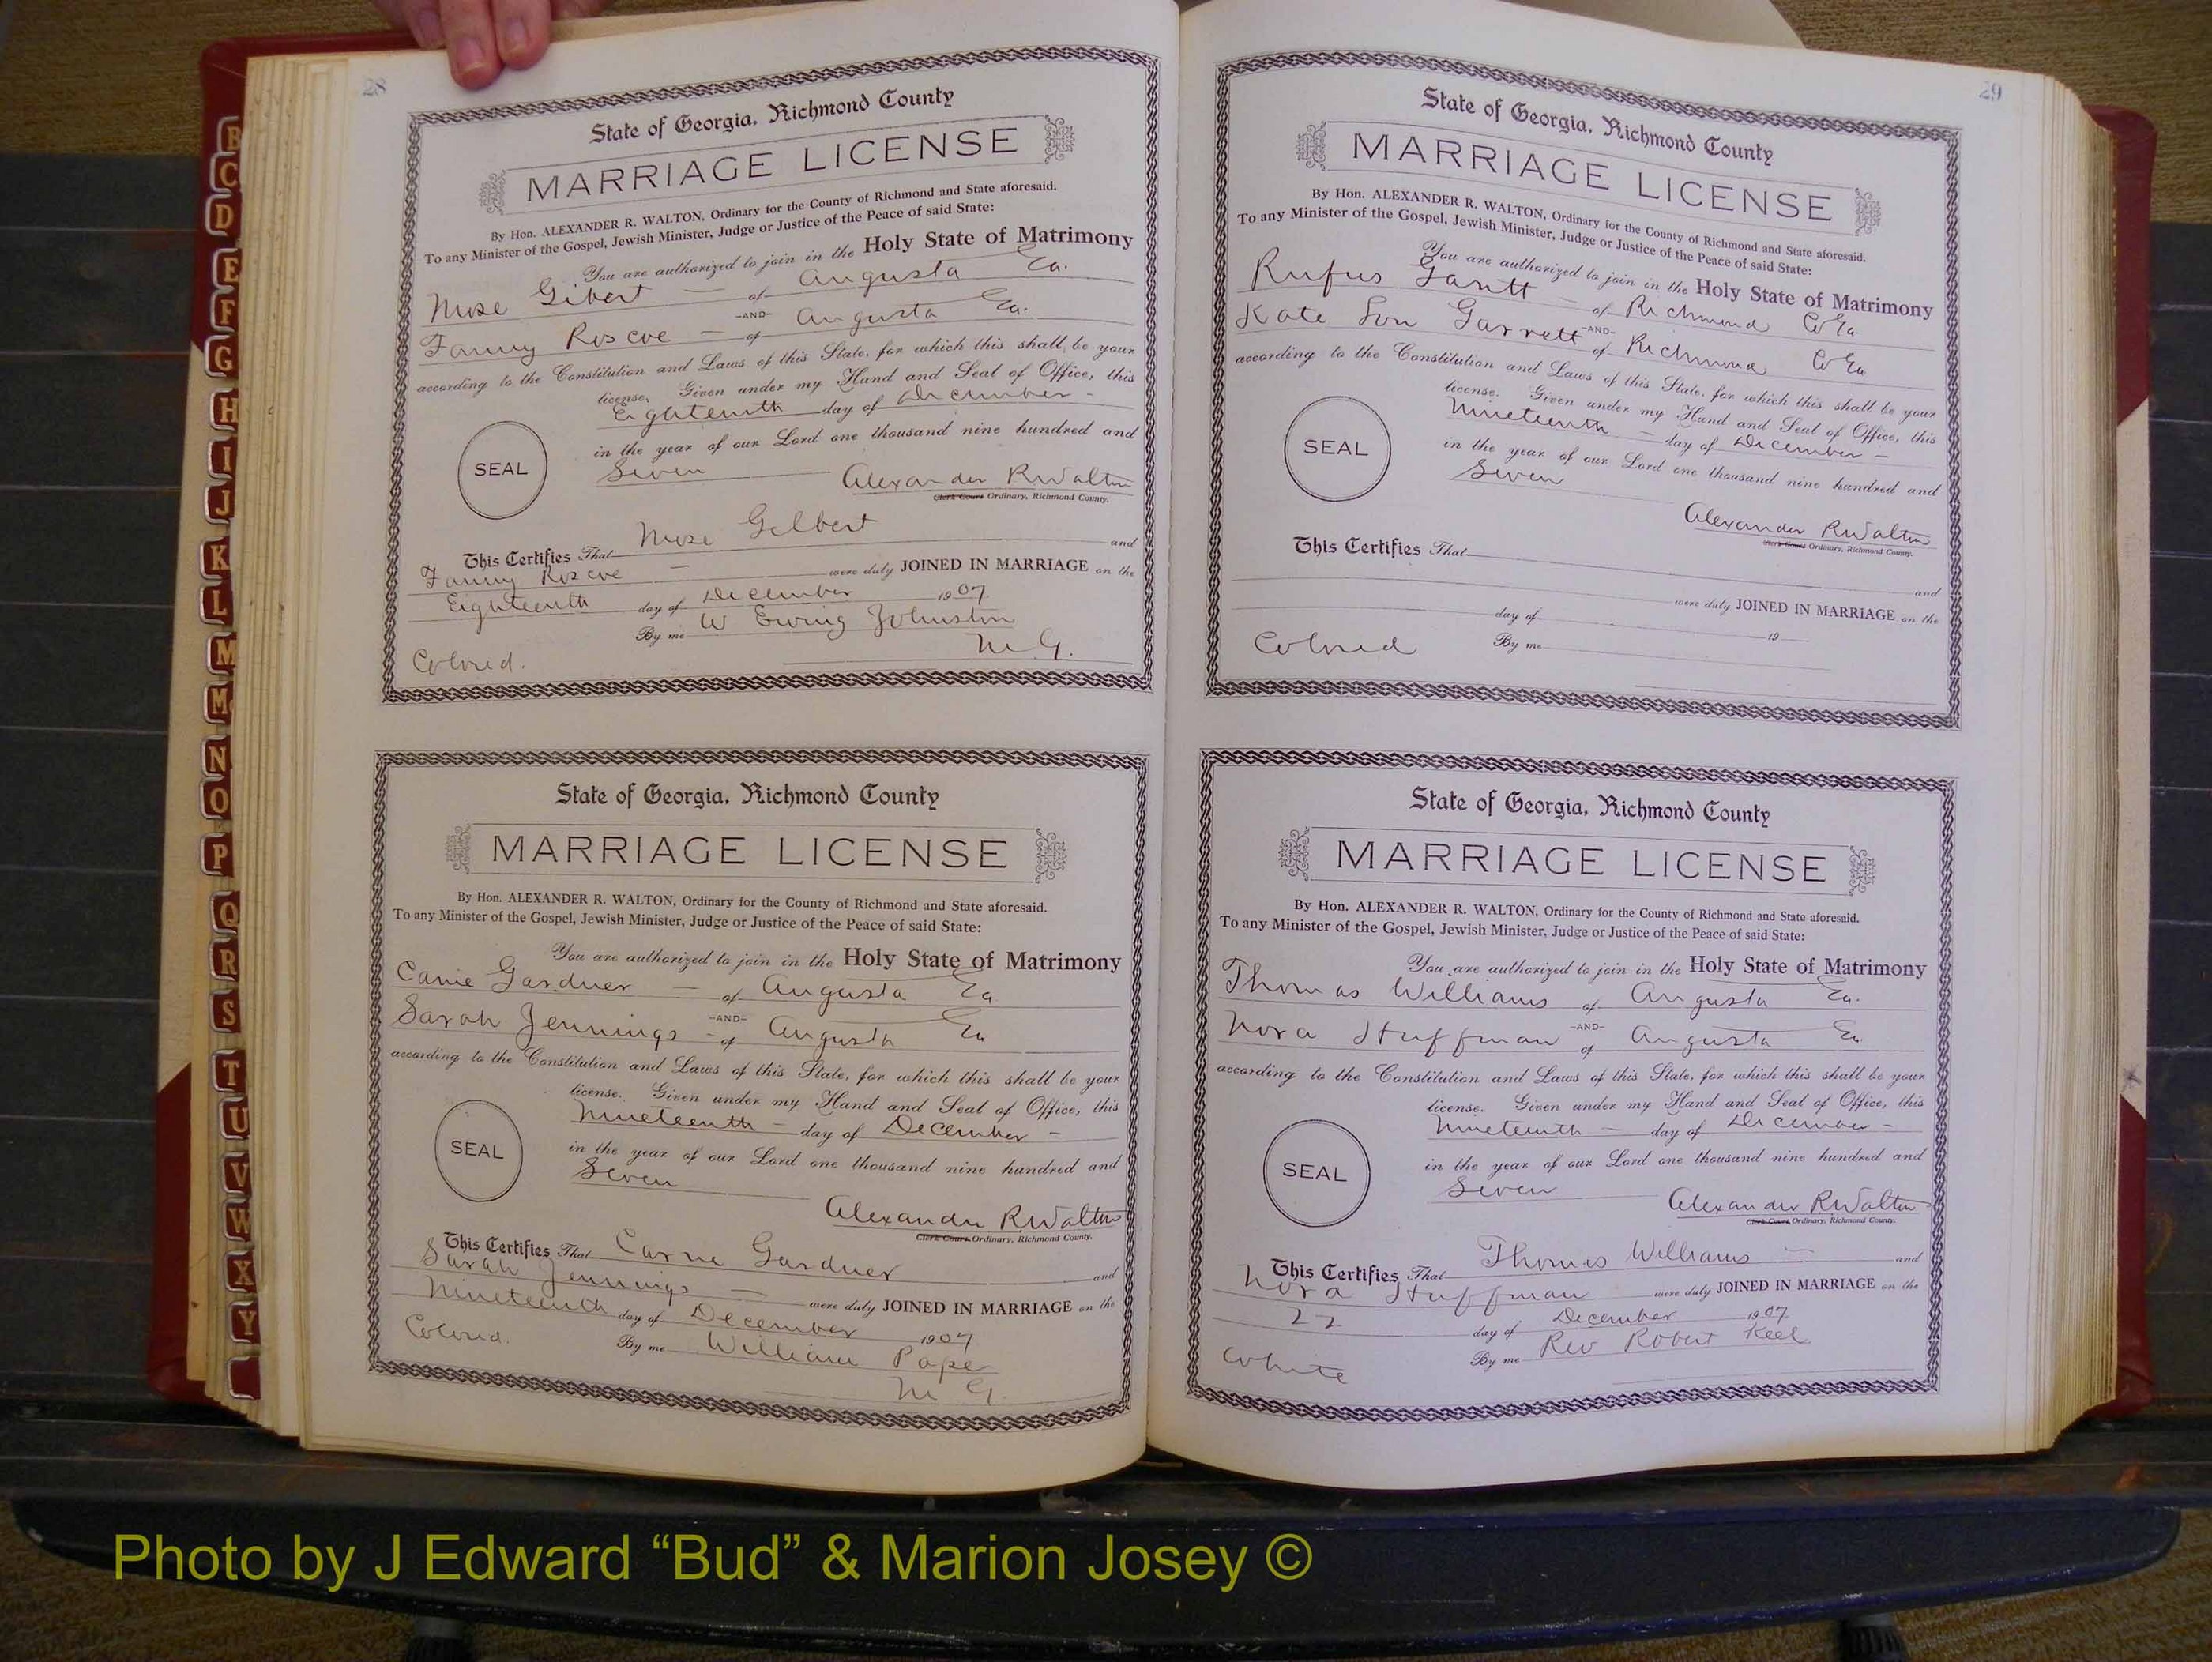 28
State of Georgia, Richmond County
MARRIAGE LICENSE
By Hon. ALEXANDER R. WALTON, Ordinary for the County of Richmond and State aforesaid.
To any Minister of the Gospel, Jewish Minister, Judge or Justice of the Peace of said State:
You are authorized to join in the Holy State of Matrimony
Mose Gibert — of Augusta Ga.
-AND-
Fanny Roscoe — of Augusta Ga.
according to the Constitution and Laws of this State, for which this shall be your
license. Given under my Hand and Seal of Office, this
Eighteenth day of December -
in the year of our Lord one thousand nine hundred and
Seven
SEAL
Alexander R Walton
Clerk Court Ordinary, Richmond County.
This Certifies That Mose Gilbert and
Fanny Roscoe — were duly JOINED IN MARRIAGE on the
Eighteenth day of December 1907
By me W Ewing Johnston
M. G.
Colored.
State of Georgia, Richmond County
MARRIAGE LICENSE
By Hon. ALEXANDER R. WALTON, Ordinary for the County of Richmond and State aforesaid.
To any Minister of the Gospel, Jewish Minister, Judge or Justice of the Peace of said State:
You are authorized to join in the Holy State of Matrimony
Carrie Gardner — of Augusta Ga
-AND-
Sarah Jennings - of Augusta Ga
according to the Constitution and Laws of this State, for which this shall be your
license. Given under my Hand and Seal of Office, this
Nineteenth - day of December -
in the year of our Lord one thousand nine hundred and
Seven
SEAL
Alexander R Walton
Clerk Court Ordinary, Richmond County.
This Certifies That Carrie Gardner and
Sarah Jennings — were duly JOINED IN MARRIAGE on the
Nineteenth day of December 1907
Colored. By me William Pope
M G.
29
State of Georgia, Richmond County
MARRIAGE LICENSE
By Hon. ALEXANDER R. WALTON, Ordinary for the County of Richmond and State aforesaid.
To any Minister of the Gospel, Jewish Minister, Judge or Justice of the Peace of said State:
You are authorized to join in the Holy State of Matrimony
Rufus Gantt — of Richmond Co Ga
-AND-
Kate Lou Garrett of Richmond Co Ga
according to the Constitution and Laws of this State, for which this shall be your
license. Given under my Hand and Seal of Office, this
Nineteenth - day of December -
in the year of our Lord one thousand nine hundred and
Seven
SEAL
Alexander R Walton
Clerk Court Ordinary, Richmond County.
This Certifies That and
were duly JOINED IN MARRIAGE on the
day of 19
Colored By me
State of Georgia, Richmond County
MARRIAGE LICENSE
By Hon. ALEXANDER R. WALTON, Ordinary for the County of Richmond and State aforesaid.
To any Minister of the Gospel, Jewish Minister, Judge or Justice of the Peace of said State:
You are authorized to join in the Holy State of Matrimony
Thomas Williams of Augusta Ga.
-AND-
Nora Huffman of Augusta Ga.
according to the Constitution and Laws of this State, for which this shall be your
license. Given under my Hand and Seal of Office, this
Nineteenth — day of December -
in the year of our Lord one thousand nine hundred and
Seven
SEAL
Alexander R Walton
Clerk Court Ordinary, Richmond County.
This Certifies That Thomas Williams — and
Nora Huffman were duly JOINED IN MARRIAGE on the
22 day of December 1907
White By me Rev Robert Keel
B
C
D
E
F
G
H
I
J
K
L
M
Mc
N
O
P
Q
R
S
T
U
V
W
X
Y
Photo by J Edward “Bud” & Marion Josey ©